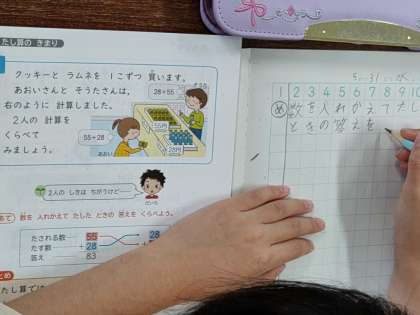 たし算の きまり
クッキーと ラムネを 1こずつ 買います。
あおいさんと そうたさんは、
右のように 計算しました。
2人の 計算を
くらべて
みましょう。
28+55
55+28
あおい
2人の しきは ちがうけど……
めあて 数を 入れかえて たした ときの 答えを くらべよう。
たされる数 55 28
たす数 + 28
答え 83
まとめ
たし算では
1 2 3 4 5 6 7 8 9 10
め 数を入れかえてたし
ときの答えを